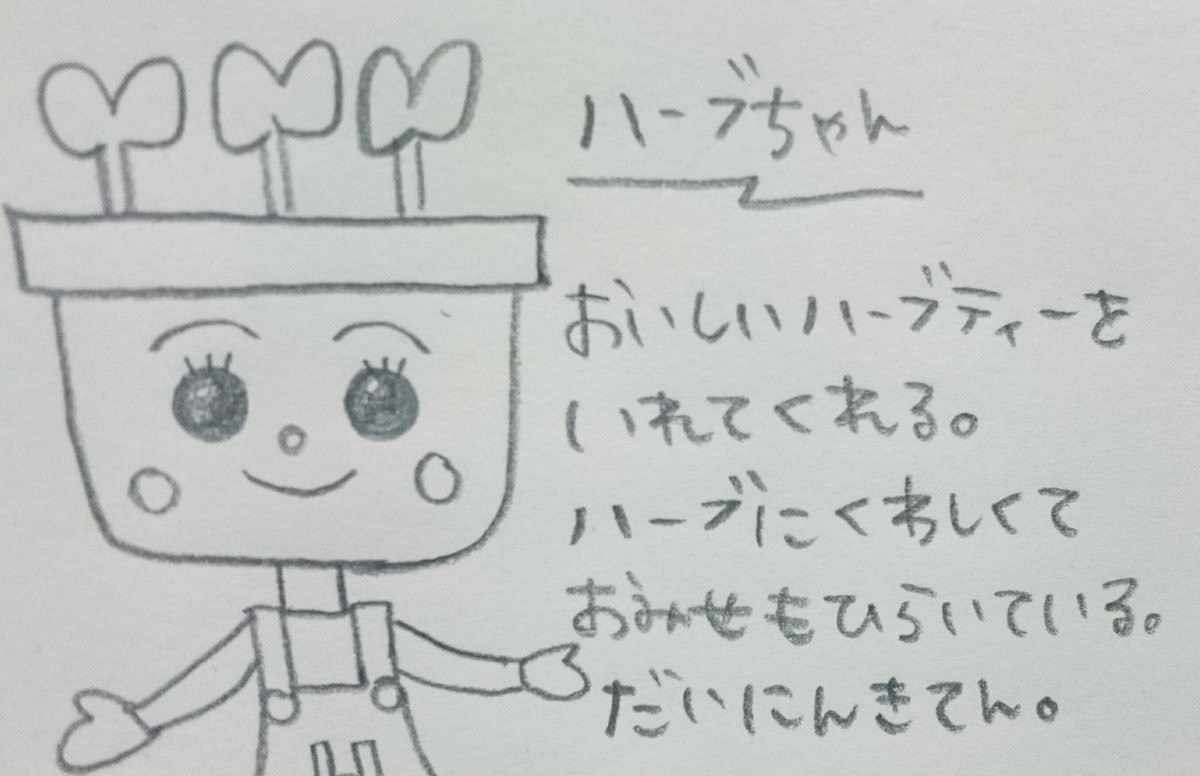 ハーブちゃん
おいしいハーブティーを
いれてくれる。
ハーブにくわしくて
おみせもひらいている。
だいにんきてん。
H